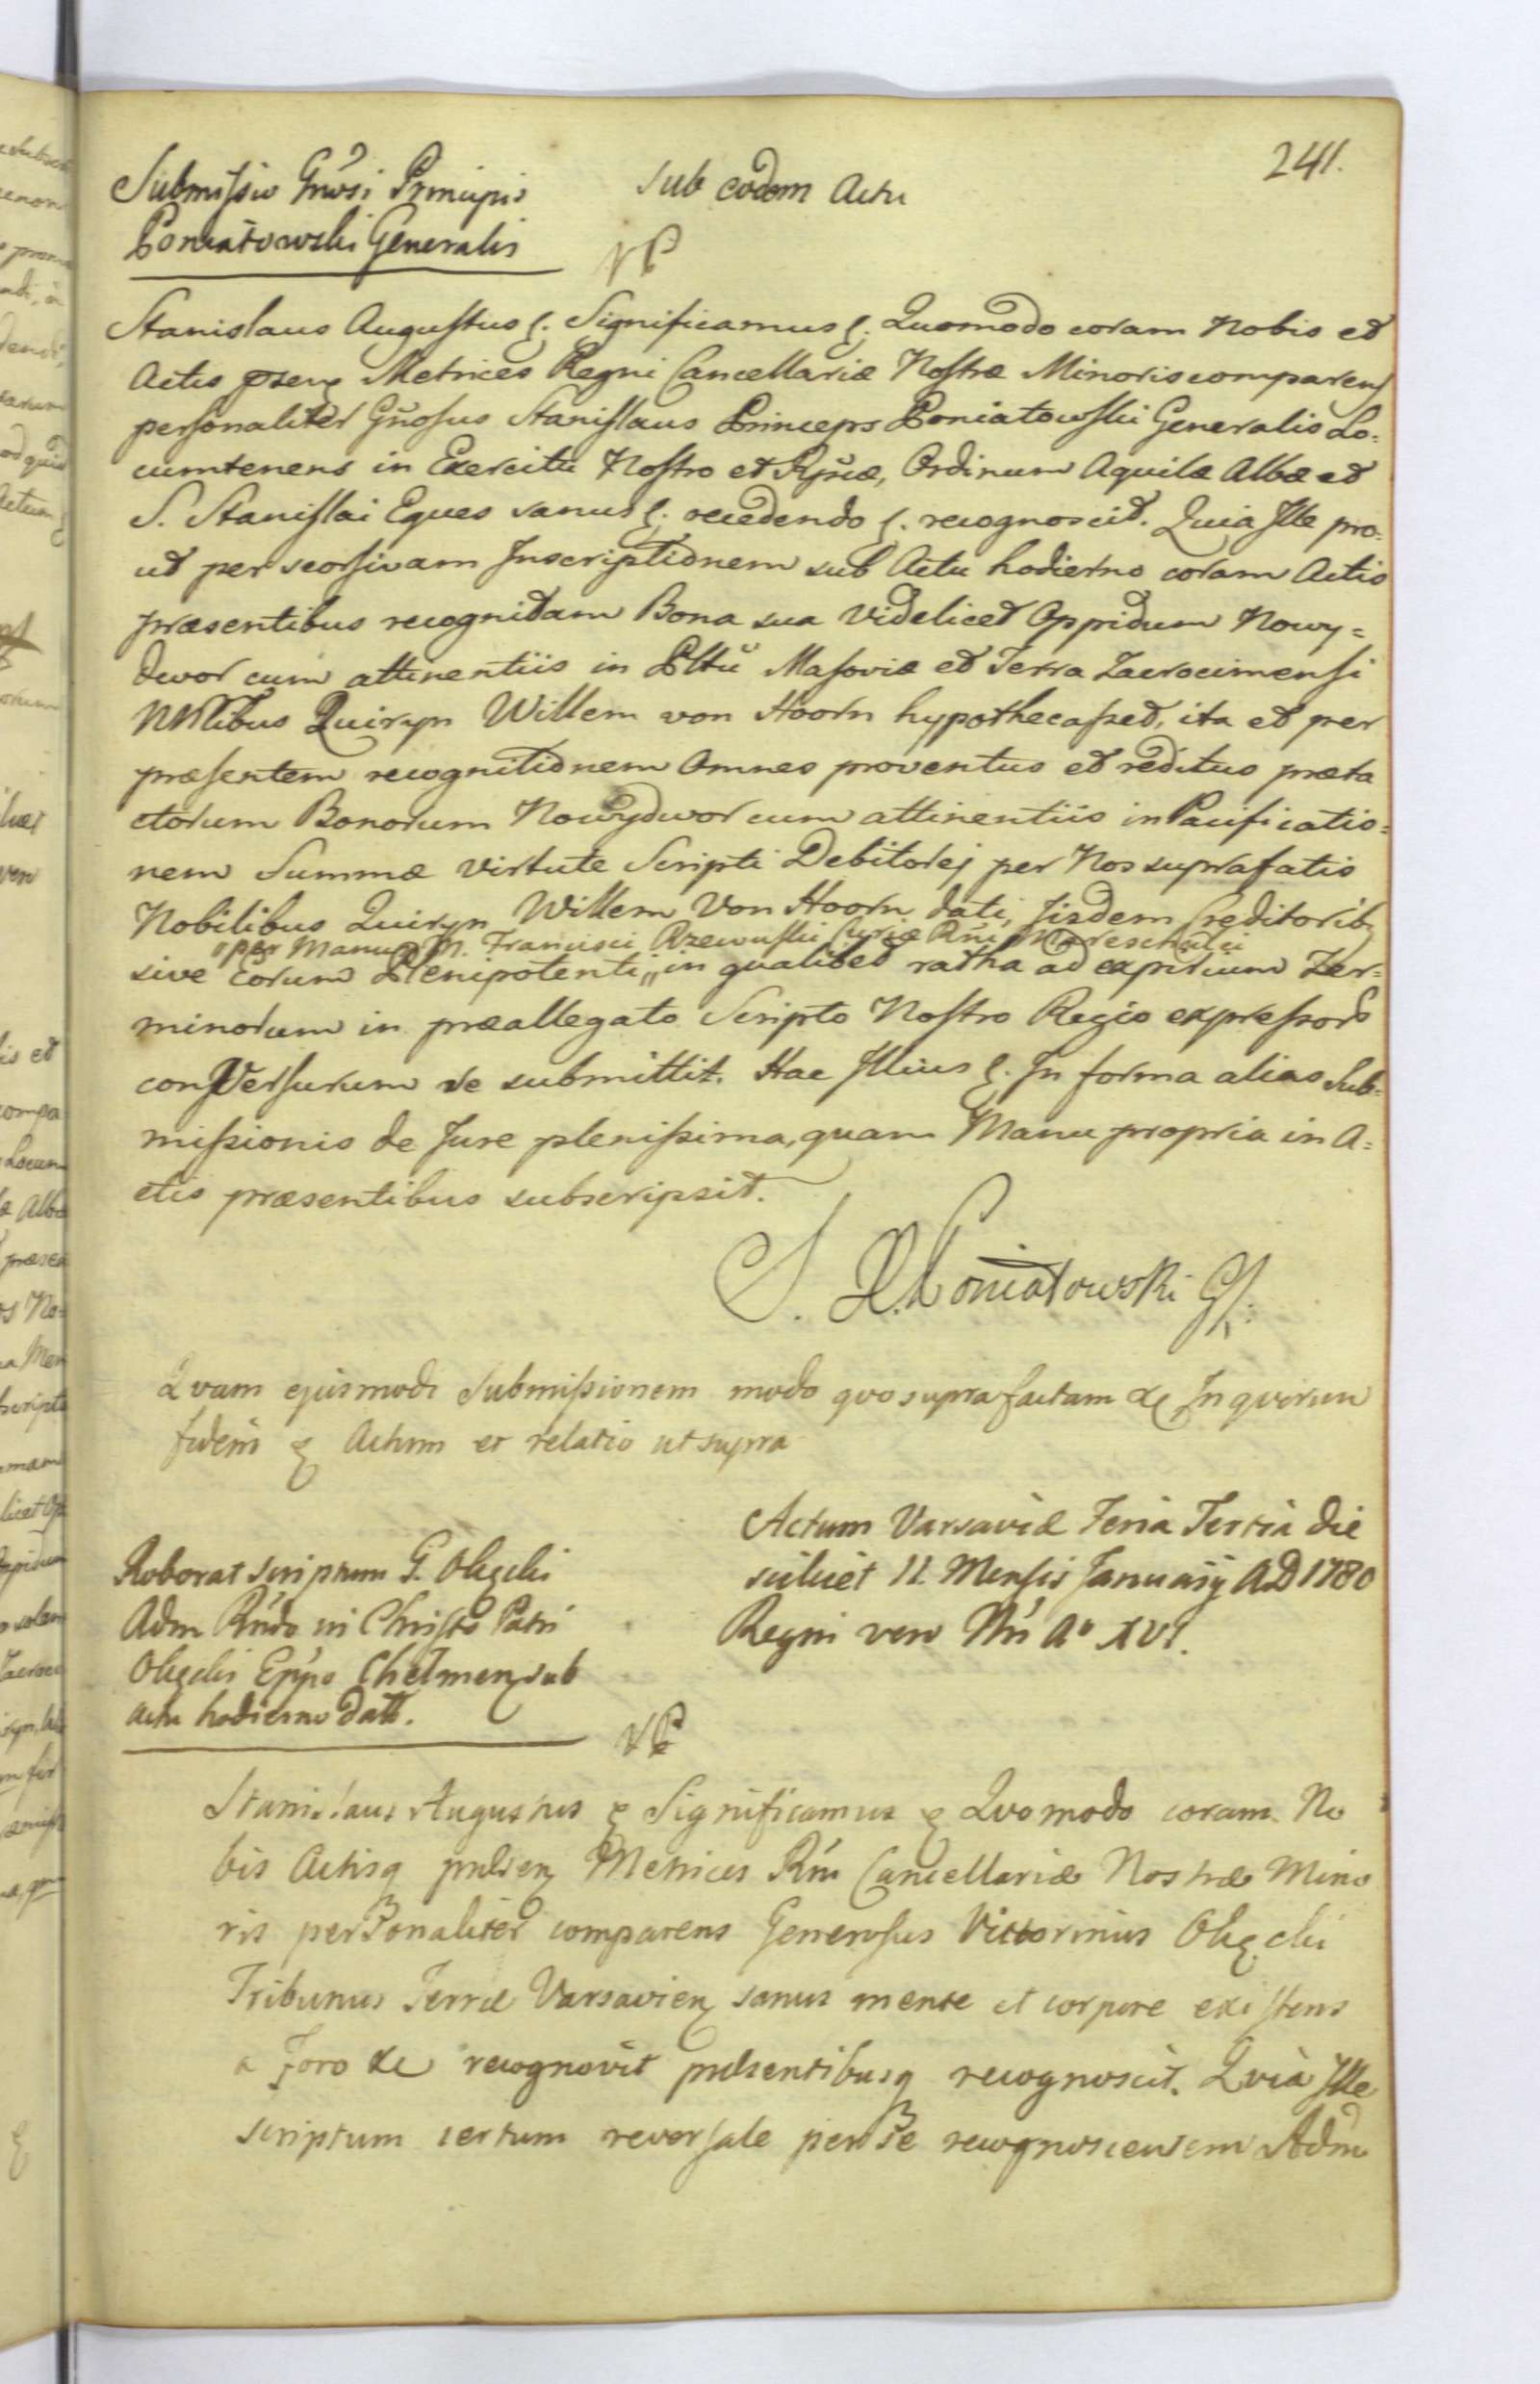 241.
Submissio Gnosi Principis
Poniatowski Generalis
Sub eodem Actu
Stanislaus Augustus &. Significamus &. Quomodo coram Nobis et
Actis psen Metrices Regni Cancellariæ Nostræ Minoris comparens
personaliter Gnosus Stanislaus Princeps Poniatowski Generalis Lo=
cumtenens in Exercitu Nostro et Rpcæ, Ordinum Aquilæ Albæ et
S. Stanislai Eques sanus &. recedendo &. recognoscit. Quia Ille pro=
ut per seorsivam Inscriptionem sub Actu hodierno coram Actis
præsentibus recognitam Bona sua videlicet Oppidum Nowy=
dwor cum attinentiis in Pltu Masoviæ et Terra Zacrocimensi
Nblibus Quiryn Willem von Hoorn hypothecasset, ita et per
præsentem recognitionem Omnes proventus et reditus præta
ctorum Bonorum Nowydwor cum attinentiis in Pacificatio=
nem Summæ virtute Scripti Debitorej per Nos suprafatis
Nobilibus Quiryn Willem Von Hoorn dati, Iisdem Creditorib
"per Manus M. Francisci Rzewuski Curiæ Rni Mareschalci
sive Eorum Plenipotenti" in qualibet ratha ad expirium Ter=
minorum in præallegato Scripto Nostro Regio expressor
conversurum se submittit. Hac Illius &. In forma alias Sub=
missionis de Jure plenissima, quam Manu propria in A=
ctis præsentibus subscripsit.
S. P. Poniatowski GL:
Quam ejusmodi Submissionem modo quo supra factam &c In quorum
fidem & Actum et relatio ut supra
Actum Varsaviæ Feria Tertia die
scilicet 11. Mensis Januarij A.D 1780
Regni vero Nri A° XVI.
Roborat scriptum G. Olęcki
Adm Rndo in Christo Patri
Olęcki Eppo Chełmen sub
actu hodierno datt.
Stanislaus Augustus & Significamus & Quomodo coram No
bis Actisq præsen Metrices Rni Cancellariæ Nostræ Mino
ris personaliter comparens Generosus Victorinus Olęcki
Tribunus Terræ Varsavien sanus mente et corpore existens
a Foro &c recognovit præsentibusq recognoscit. Quia Ille
scriptum certum reversale per se recognoscentem Adm